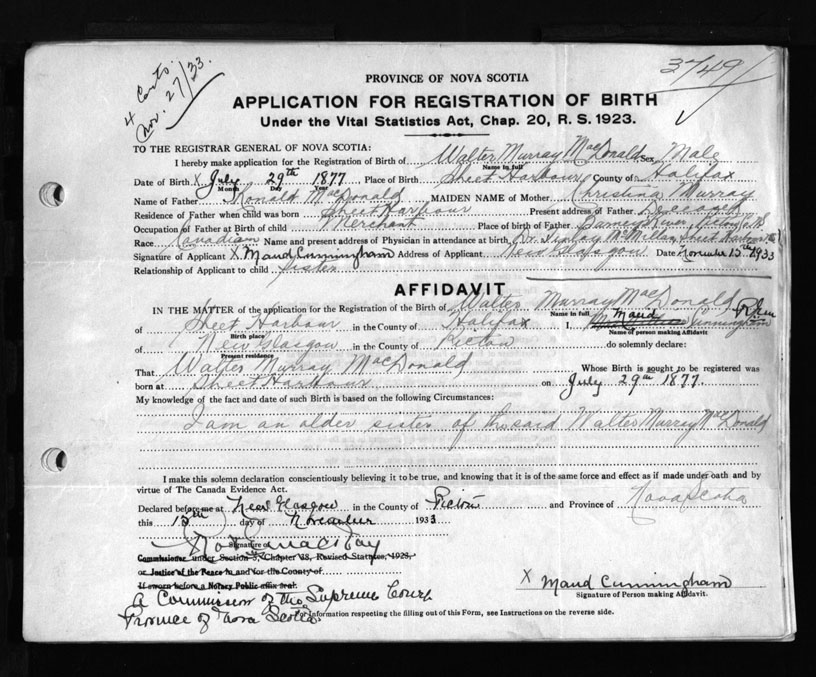 4 Certs.
Nov. 27/33.
3749
PROVINCE OF NOVA SCOTIA
APPLICATION FOR REGISTRATION OF BIRTH
Under the Vital Statistics Act, Chap. 20, R. S. 1923.
TO THE REGISTRAR GENERAL OF NOVA SCOTIA:
I hereby make application for the Registration of Birth of Walter Murray MacDonald Sex Male
Name in full
Date of Birth X July 29th 1877 Place of Birth Sheet Harbour County of Halifax
Month Day Year
Name of Father Ronald MacDonald MAIDEN NAME of Mother Christina Murray
Residence of Father when child was born Sheet Harbour Present address of Father Deceased
Occupation of Father at Birth of child Merchant Place of birth of Father Barneys River
Race Canadian Name and present address of Physician in attendance at birth Dr. Finlay McMillan Sheet Harbour
Signature of Applicant X Maud Cunningham Address of Applicant New Glasgow Date November 15th 1933
Relationship of Applicant to child Sister
AFFIDAVIT
IN THE MATTER of the application for the Registration of the Birth of Walter Murray MacDonald
Name in full
of Sheet Harbour in the County of Halifax I, Maud Cunningham
Birth place Name of person making Affidavit
of New Glasgow in the County of Pictou do solemnly declare:
Present residence
That Walter Murray MacDonald Whose Birth is sought to be registered was
born at Sheet Harbour on July 29th 1877.
My knowledge of the fact and date of such Birth is based on the following Circumstances:
I am an older sister of the said Walter Murray MacDonald
I make this solemn declaration conscientiously believing it to be true, and knowing that it is of the same force and effect as if made under oath and by
virtue of The Canada Evidence Act.
Declared before me at New Glasgow in the County of Pictou and Province of Nova Scotia
this 15th day of November 1933
Signature of
Commissioner under Section 3, Chapter 38, Revised Statutes, 1923,
or Justice of the Peace in and for the County of
If sworn before a Notary Public affix seal.
A Commissioner of the Supreme Court
Province of Nova Scotia
X Maud Cunningham
Signature of Person making Affidavit.
For Information respecting the filling out of this Form, see Instructions on the reverse side.